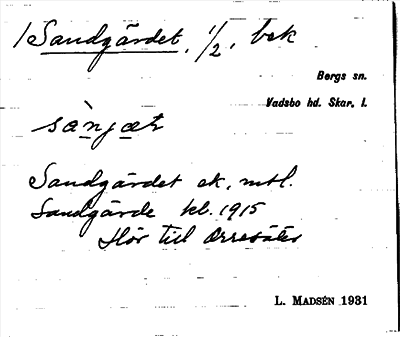 1 Sandgärdet, 1/2, bek
Bergs sn.
Vadsbo hd. Skar. l.
sànjæt
Sandgärdet ek, mtl.
Sandgärde kl. 1915
Hör till Orresäter
L. MADSÉN 1931